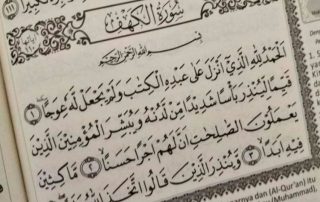 سُورَةُ الْكَهْفِ
بِسْمِ اللَّهِ الرَّحْمَٰنِ الرَّحِيمِ
اَلْحَمْدُ لِلّٰهِ الَّذِيْٓ اَنْزَلَ عَلٰى عَبْدِهِ الْكِتٰبَ وَلَمْ يَجْعَلْ لَّهٗ عِوَجًا ١
قَيِّمًا لِّيُنْذِرَ بَأْسًا شَدِيْدًا مِّنْ لَّدُنْهُ وَيُبَشِّرَ الْمُؤْمِنِيْنَ الَّذِيْنَ
يَعْمَلُوْنَ الصّٰلِحٰتِ اَنَّ لَهُمْ اَجْرًا حَسَنًا ٢ مَّاكِثِيْنَ
فِيْهِ اَبَدًا ٣ وَّيُنْذِرَ الَّذِيْنَ قَالُوا اتَّخَذَ اللّٰهُ
(Al-Qur'an) itu
(Muhammad),